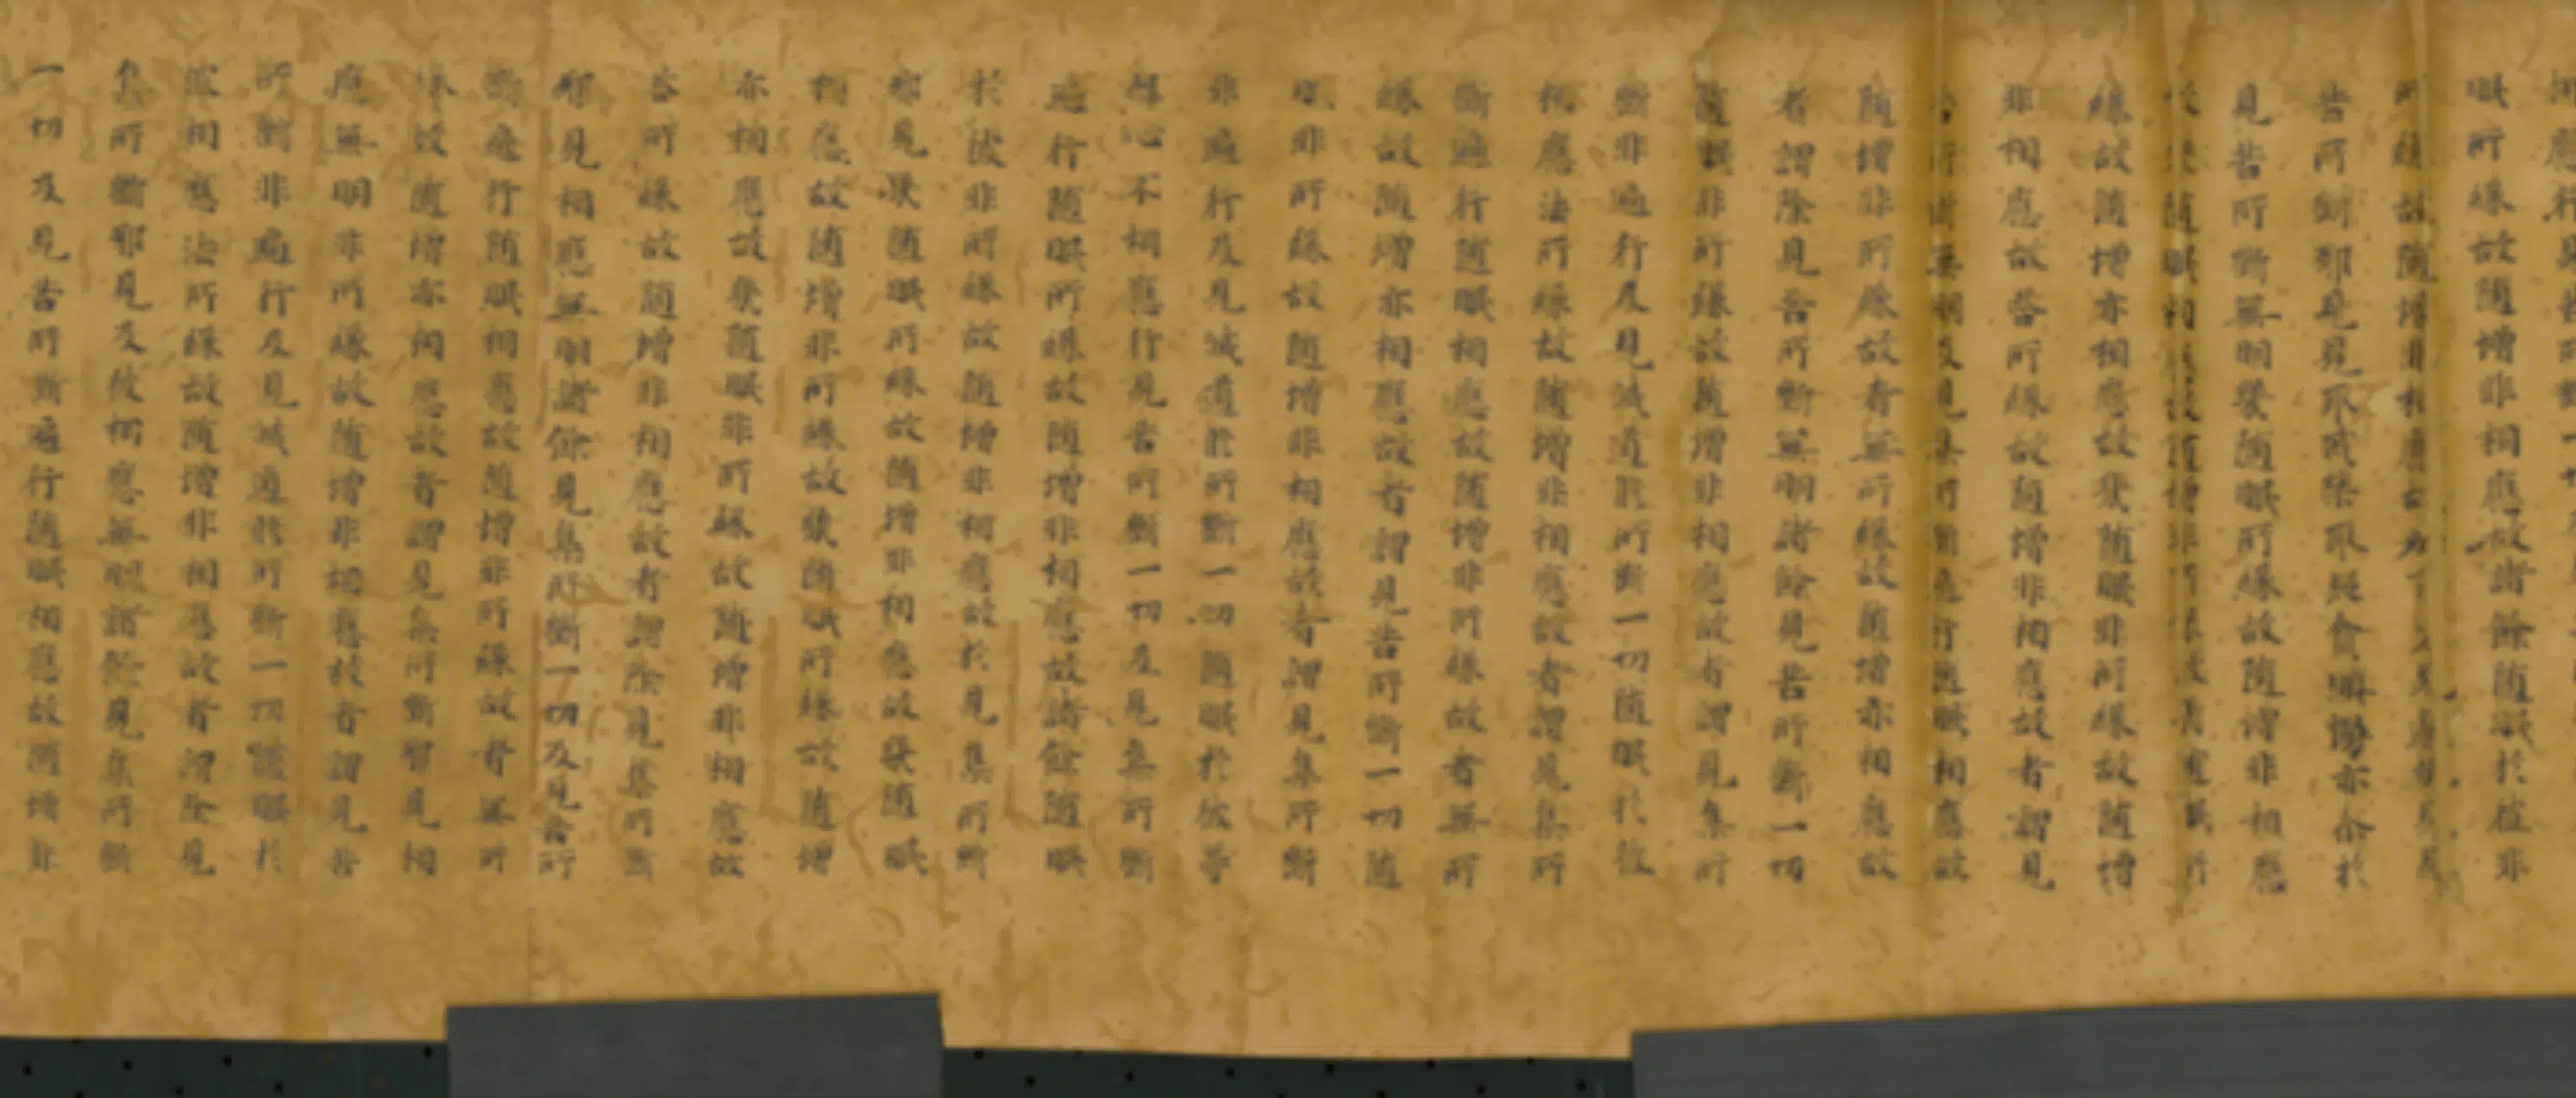 眠所緣故随增非相應故諸餘随眠於彼非
苦所斷邪見見取戒禁取疑貪瞋慢亦尒於
見苦所斷無明幾随眠所緣故随增非相應
緣故随增亦相應故幾随眠非所緣故随增
非相應故答所緣故随增非相應故者謂見
苦所斷無明及見集所斷遍行随眠相應故
随增非所緣故者無所緣故随增亦相應故
者謂除見苦所斷無明諸餘見苦所斷一切
随眠非所緣故随增非相應故者謂見集所
斷非遍行及見滅道所斷一切随眠於彼
相應法所緣故随增非相應故者謂見集所
斷遍行随眠相應故随增非所緣故者無所
緣故随增亦相應故者謂見苦所斷一切随
眠非所緣故随增非相應故者謂見集所斷
非遍行及見滅道所斷一切随眠於彼等
起心不相應行見苦所斷一切及見集所斷
遍行随眠所緣故随增非相應故諸餘随眠
於彼非所緣故随增非相應故於見集所斷
邪見幾随眠所緣故随增非相應故幾随眠
相應故随增非所緣故幾随眠所緣故随增
亦相應故幾随眠非所緣故随增非相應故
答所緣故随增非相應故者謂除見集所斷
邪見相應無明諸餘見集所斷一切及見苦所
斷遍行随眠相應故随增非所緣故者無所
緣故随增亦相應故者謂見集所斷邪見相
應無明非所緣故随增非相應故者謂見苦
所斷非遍行及見滅道所斷一切随眠於
彼相應法所緣故随增非相應故者謂除見
集所斷邪見及彼相應無明諸餘見集所斷
一切及見苦所斷遍行随眠相應故随增非